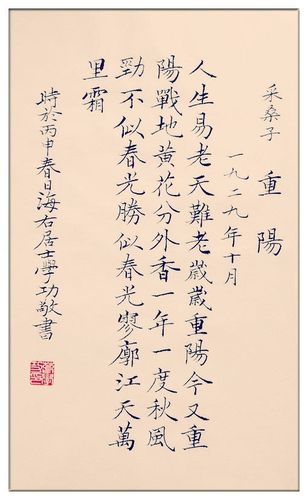 采桑子
重陽
一九二九年十月
人生易老天難老歲歲重陽今又重
陽戰地黃花分外香一年一度秋風
勁不似春光勝似春光寥廓江天萬
里霜
時於丙申春日海右居士學功敬書